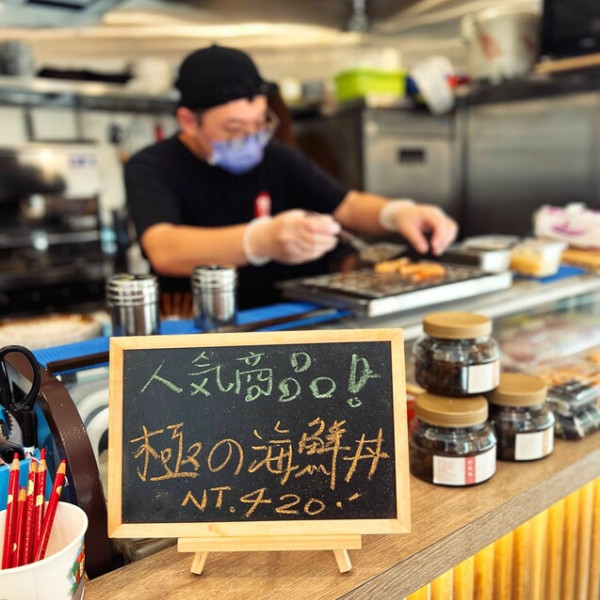 人気商品!
極の海鮮丼
NT.420.-